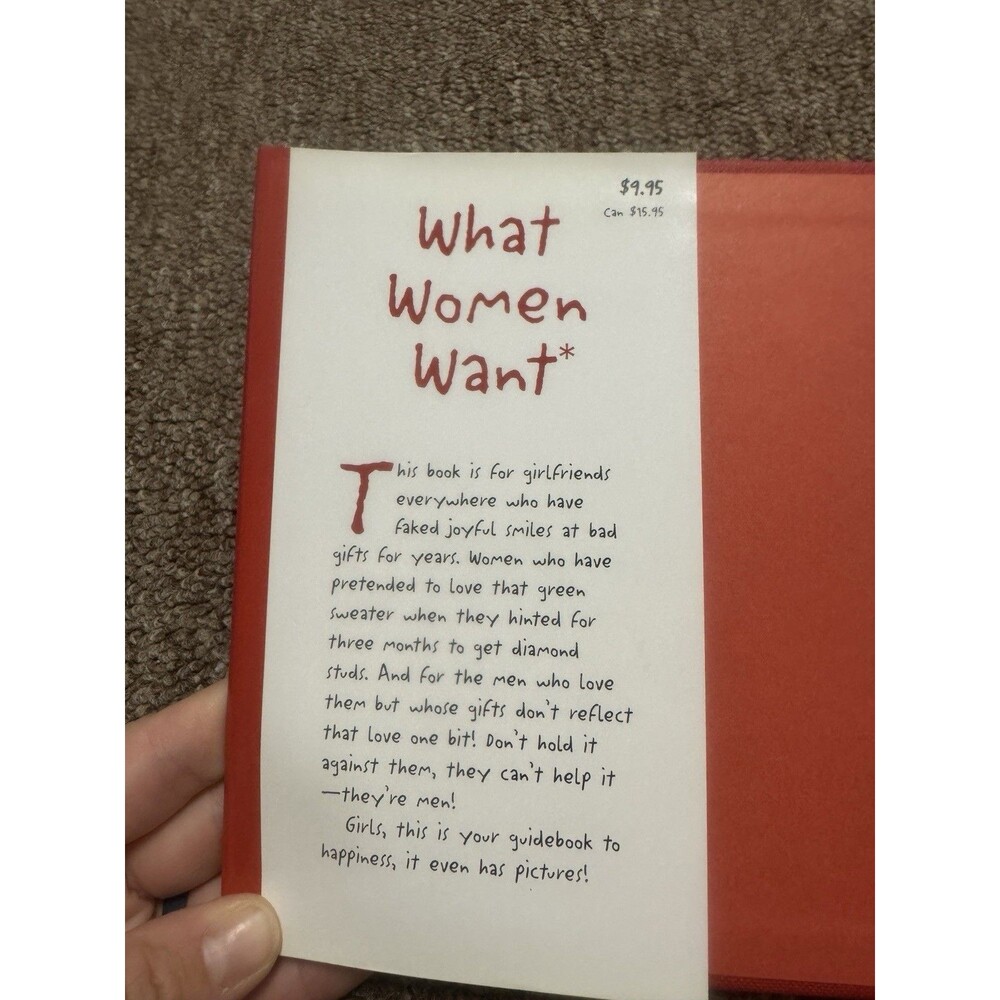 $9.95
Can $15.95
What
Women
Want*
This book is for girlfriends
everywhere who have
faked joyful smiles at bad
gifts for years. Women who have
pretended to love that green
sweater when they hinted for
three months to get diamond
studs. And for the men who love
them but whose gifts don't reflect
that love one bit! Don't hold it
against them, they can't help it
—they're men!
Girls, this is your guidebook to
happiness, it even has pictures!